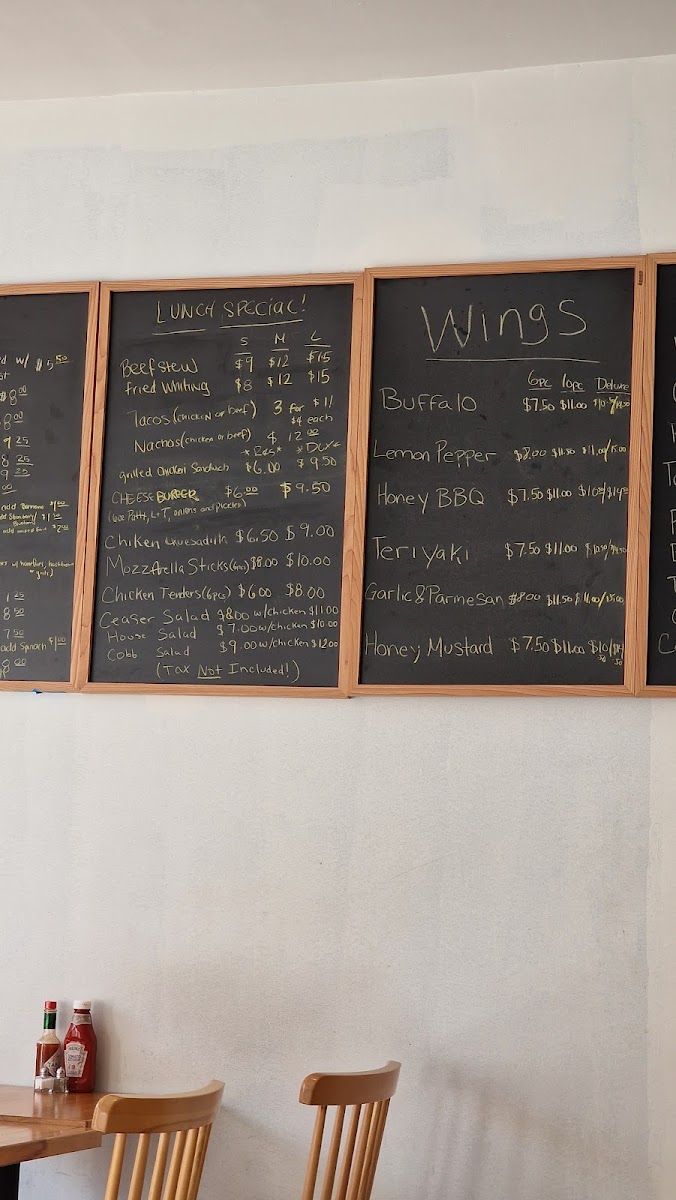 $5.50
$8.00
8.00
9.25
8.25
1.25
8.50
7.50
add Spinach $1.00
LUNCH SPECIAL!
S M L
Beef stew $9 $12 $15
Fried Whiting $8 $12 $15
Tacos (chicken or beef) 3 for $11
$4 each
Nachos (chicken or beef) $12.00
*Reg* *DLX*
grilled chicken Sandwich $6.00 $9.50
CHEESE BURGER $6.00 $9.50
(6oz Patty, L+T, onions and pickles)
Chiken $6.50 $9.00
MozzArella Sticks (6pc) $8.00 $10.00
Chicken Tenders (6pc) $6.00 $8.00
Ceaser Salad $8.00 w/chicken $11.00
House Salad $7.00 w/chicken $10.00
Cobb Salad $9.00 w/chicken $12.00
(Tax Not Included!)
Wings
6pc 10pc Deluxe
Buffalo $7.50 $11.00
Lemon Pepper $8.00 $11.50 $11.00/15.00
Honey BBQ $7.50 $11.00
Teriyaki $7.50 $11.00
Garlic & Parmesan $8.00 $11.50 $11.00/15.00
Honey Mustard $7.50 $11.00